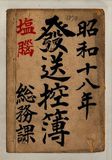 昭和十八年
發送控簿
塩腦
総務課